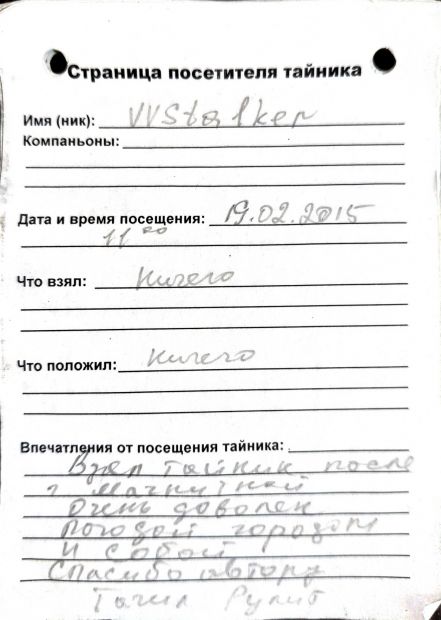 Страница посетителя тайника
Имя (ник): VVStalker
Компаньоны:
Дата и время посещения: 19.02.2015
11 20
Что взял: Ничего
Что положил: Ничего
Впечатления от посещения тайника:
Взял тайник после
г. Магнитной
Очень доволен
погодой городом
и собой
Спасибо автору
Тагил Рулит